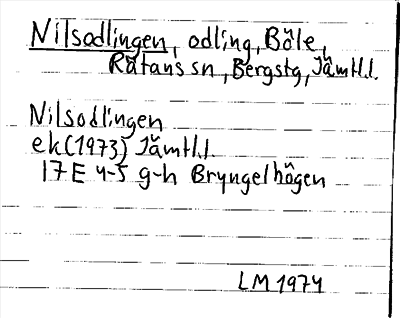 Nilsodlingen, odling, Böle,
Rätans sn, Bergstg, Jämtl.l.
Nilsodlingen
ek (1973) Jämtl.l.
17E 4-5 g-h Bryngelhögen
LM 1974